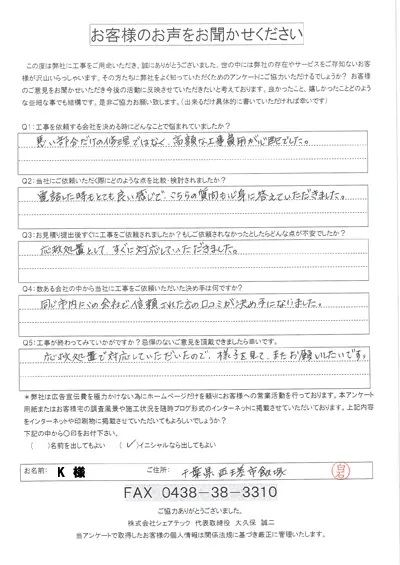 お客様のお声をお聞かせください
この度は弊社に工事をご用命いただき、誠にありがとうございました。世の中には弊社の存在やサービスをご存知ないお客様が沢山いらっしゃいます。その方たちに弊社をよく知っていただくためのアンケートにご協力いただけるでしょうか? お客様のご意見をお聞かせいただき今後の活動に反映させていただきたいと考えております。良かったこと、嬉しかったことどのような些細な事でも結構です。是非ご協力お願い致します。(出来るだけ具体的に書いていただければ幸いです)
Q1:工事を依頼する会社を決める時にどんなことで悩まれていましたか?
悪い部分だけの修理ではなく、高額な工事費用が心配でした。
Q2:当社にご依頼いただく際にどのような点を比較・検討されましたか?
電話した時もとても良い感じで、こちらの質問も心身に答えていただきました。
Q3:お見積り提出後すぐに工事をご依頼されましたか?もしご依頼されなかったとしたらどんな点が不安でしたか?
応救処置として、すぐに対応していただきました。
Q4:数ある会社の中から当社に工事をご依頼いただいた決め手は何ですか?
同じ市内にこの会社で依頼された方の口コミが決め手になりました。
Q5:工事が終わってみていかがですか?忌憚のないご意見を頂戴できましたら幸いです。
応救処置で対応していただいたので、様子を見て、またお願いしたいです。
*弊社は広告宣伝費を極力かけない為にホームページだけを頼りにお客様への営業活動を行っております。本アンケート用紙またはお客様宅の調査風景や施工状況を随時ブログ形式のインターネットに掲載させていただいております。上記内容をインターネットや印刷物に掲載させていただいてもよろしいでしょうか?
下記の中から○印をお付下さい。
( )名前を出してもよい (✓)イニシャルなら出してもよい
お名前: K 様 ご住所: 千葉県 市飯塚 白石
FAX 0438-38-3310
ご協力ありがとうございました。
株式会社シェアテック 代表取締役 大久保 誠二
当アンケートで取得したお客様の個人情報は関係法規に基づき厳正に管理いたします。